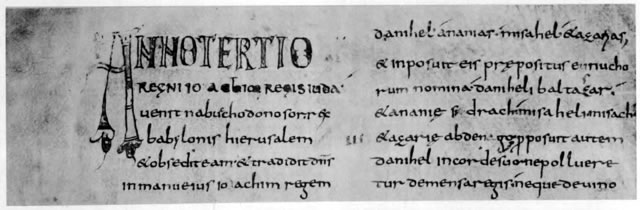 ANNO TERTIO
REGNI IOACHIM REGIS IUDA
uenit nabuchodonosor rex
babylonis hierusalem
& obsedit eam & tradidit dns
in manu eius ioachim regem
danihel ananias misahel & azarias,
& inposuit eis præpositus eunucho
rum nomina daniheli baltazar.
& ananie sidrac misaheli misach
& azarie abdenago proposuit autem
danihel in corde suo ne polluere
tur de mensa regis neque de uino